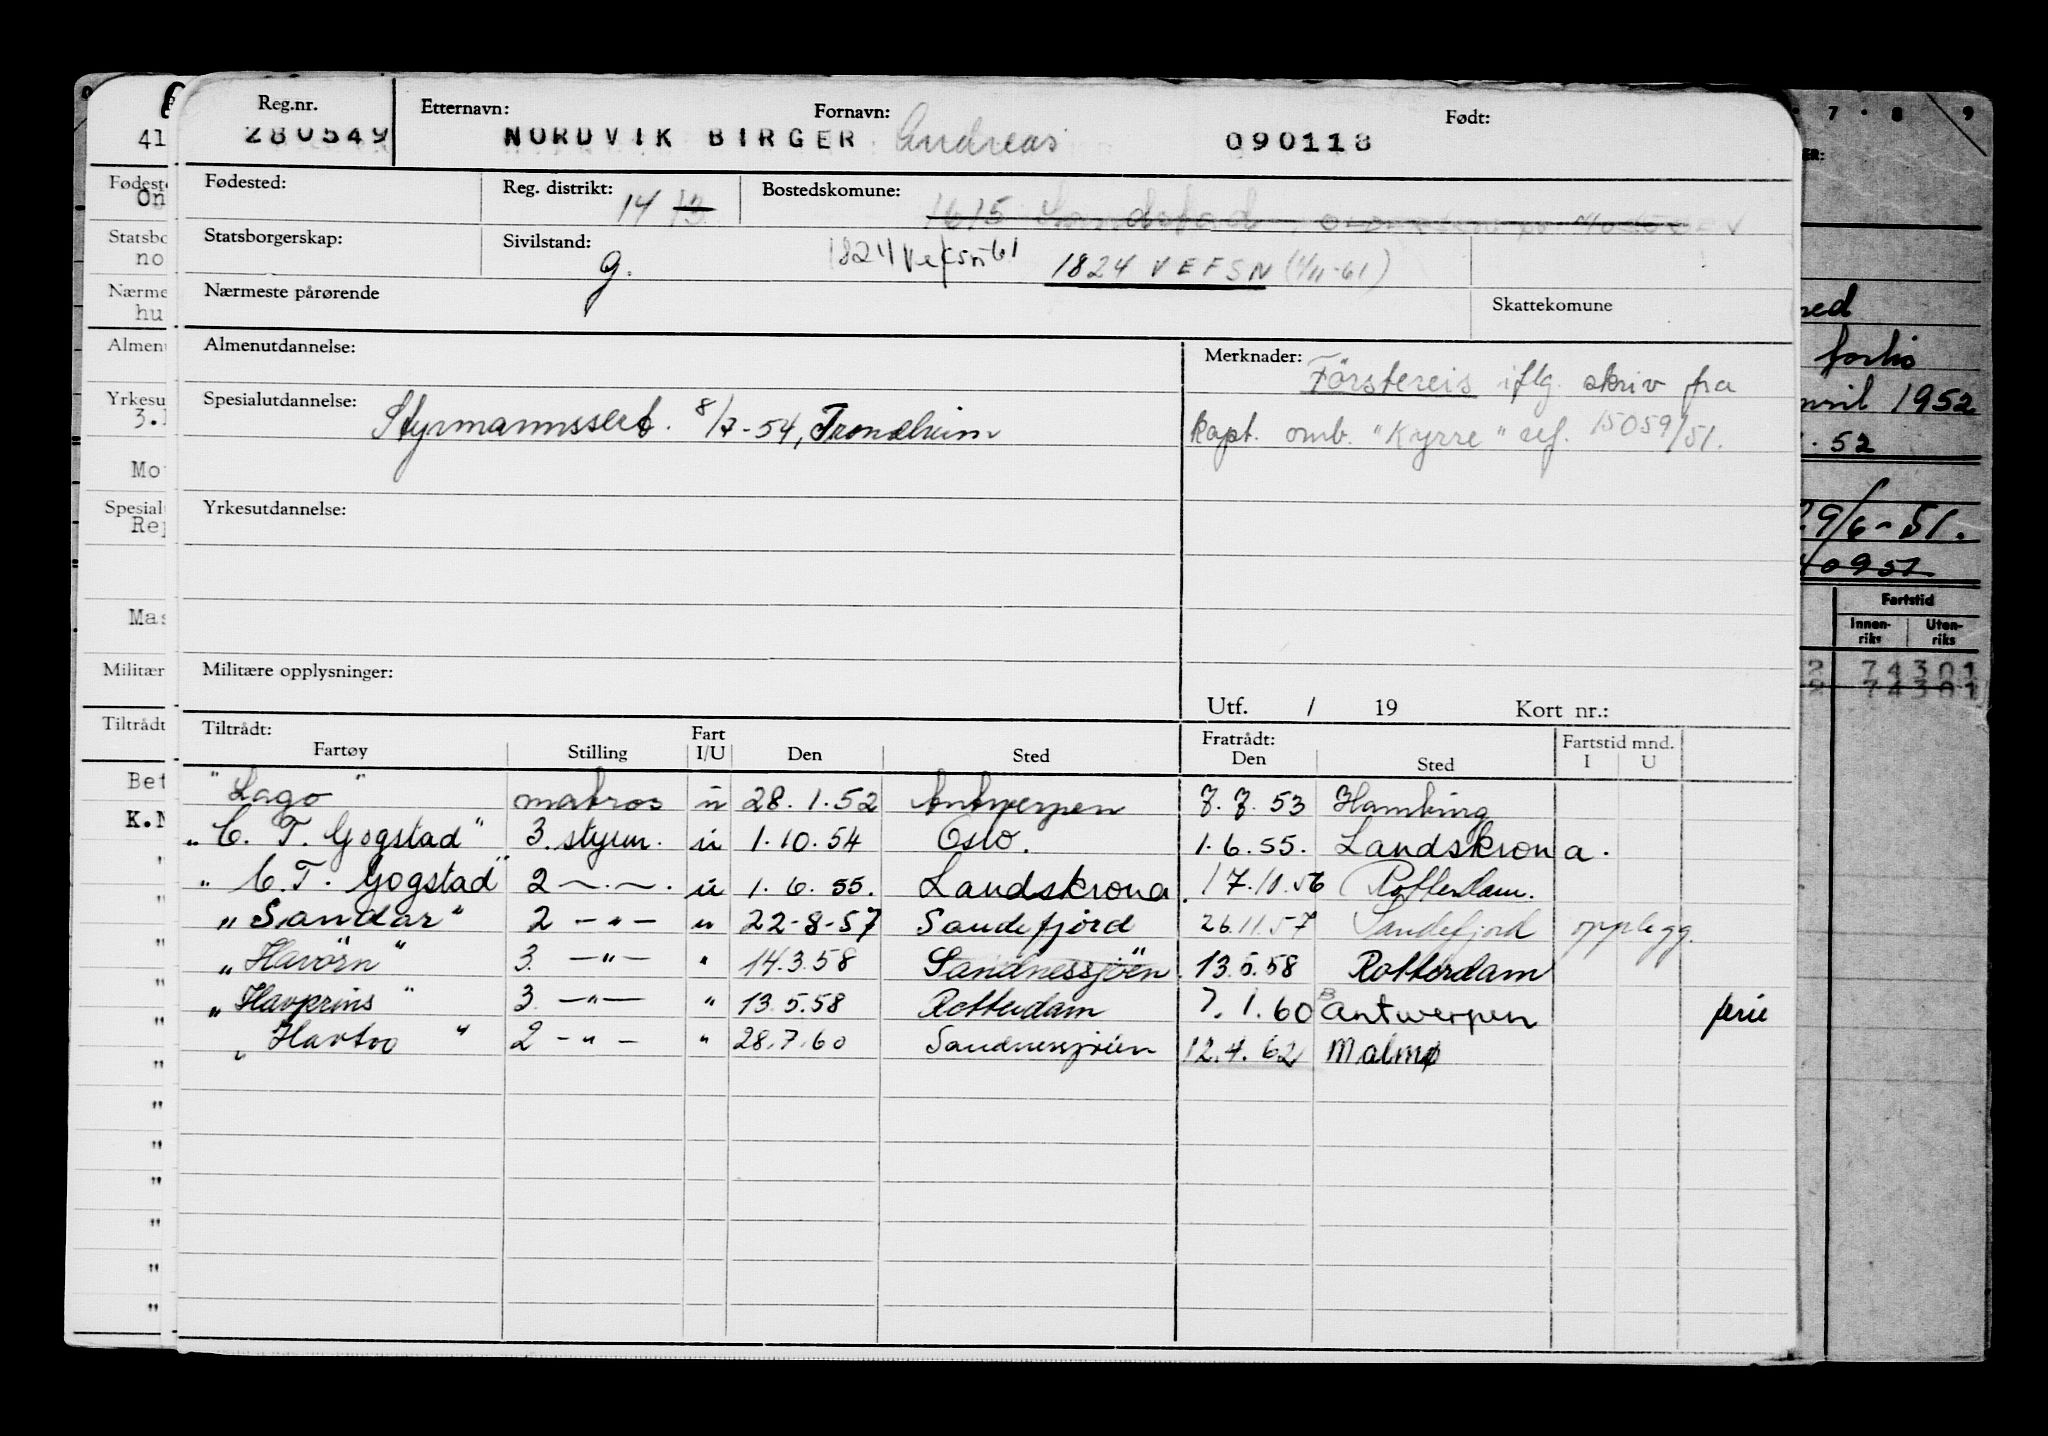 Reg.nr. Etternavn: Fornavn: Født:
280549 NORDVIK BIRGER Andreas 090118
Fødested: Reg. distrikt: 14 13 Bostedskomune: 1615 Sandstad
Statsborgerskap: Sivilstand: g. 1824 Vefsn 61 1824 VEFSN (1/11-61)
Nærmeste pårørende Skattekomune
Almenutdannelse: Merknader: Förstereis iflg. skriv fra
Spesialutdannelse: Styrmannssert. 8/7-54, Trondheim kapt. omb. "Kyrre" ref. 15059/51.
Yrkesutdannelse:
Militære opplysninger:
Utf. / 19 Kort nr.:
Tiltrådt: Fart Fratrådt: Fartstid mnd.
Fartøy Stilling I/U Den Sted Den Sted I U
"Lago" matros u 28.1.52 Antwerpen 7.7.53 Hamburg
"C. T. Gogstad" 3. styrm. u 1.10.54 Oslo. 1.6.55. Landskrona.
"C.T. Gogstad" 2 —.—. u 1.6.55. Landskrona. 17.10.56 Rotterdam.
"Sandar" 2 — " — u 22-8-57 Sandefjord 26.11.57 Sandefjord opplegg.
"Havörn" 3. — " — " 14.3.58 Sandnessjöen. 13.5.58 Rotterdam
"Havprins" 3. — " — " 13.5.58 Rotterdam 7.1.60 Antwerpen ferie
"Havtro" 2 — " — " 28.7.60 Sandnessjöen 12.4.62 Malmø
41
Fødeste
On
Statsbo
no
Nærme
hu
Almen
Yrkesu
3.
Mo
Spesial
Rep
Mas
Militær
Tiltrådt
Bet
K.N
7 · 8 9
ER:
1952
. 52
29/6-51.
40951
Fartstid
Innen-riks Uten-riks
2 74301
2 74301